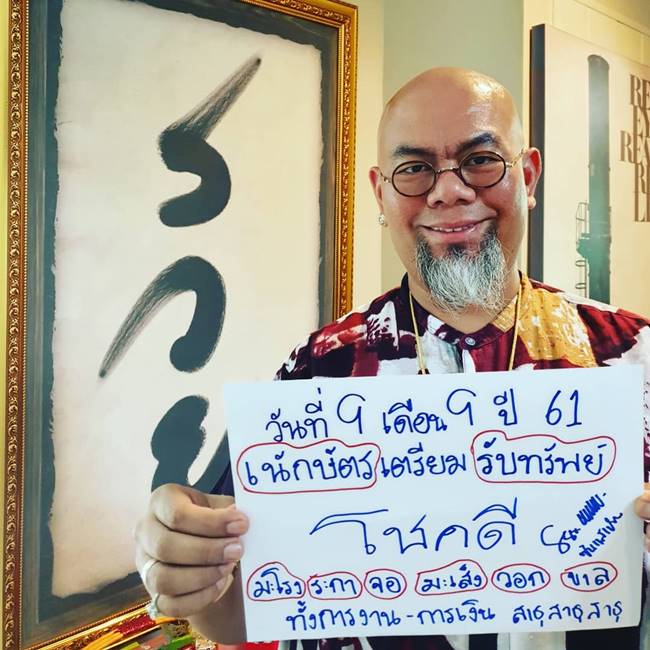 รวย
RE
EV
RE
RE
LI
วันที่ 9 เดือน 9 ปี 61
๑๒นักษัตรเตรียม รับทรัพย์
โชคดี
มะโรง ระกา จอ มะเส็ง วอก ขาล
ทั้งการงาน - การเงิน สาธุ สาธุ สาธุ